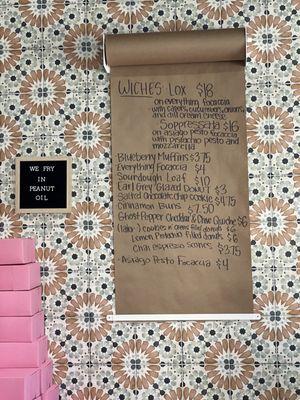 WICHES LOX $18
on everything focaccia
with capers, cucumbers, onions,
and dill cream cheese
Soppressata $16
on asiago pesto focaccia
with pistachio pesto and
mozzarella
Blueberry Muffins $3.75
Everything Focaccia $4
Sourdough Loaf $10
Earl Grey Glazed Donut $3
Salted Chocolate Chip Cookie $4.75
Cinnamon Buns $7.50
Ghost Pepper Cheddar & Chive Quiche $6
cookies n' cream filled donuts $6
Lemon Pistachio filled donuts $6
Chai Espresso Scones $3.75
- Asiago Pesto Focaccia $4
WE FRY
IN
PEANUT
OIL